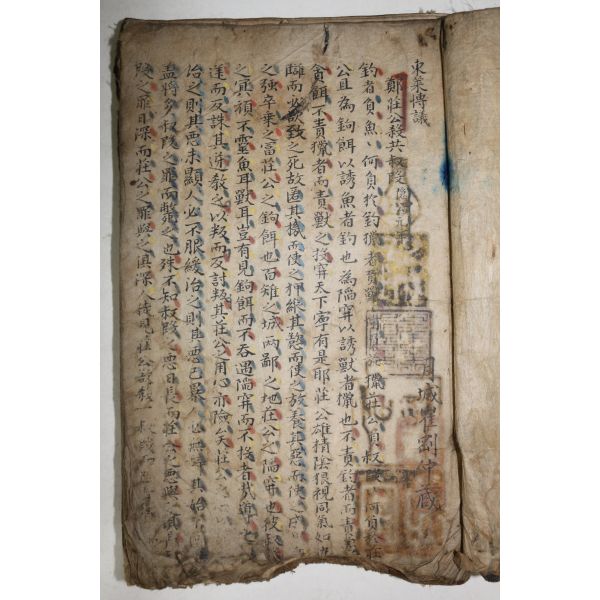 東萊博議
鄭莊公殺共叔段
釣者負魚、何負於釣獵者負獸 獵莊公負叔段 何負於莊
公且為鉤餌以誘魚者釣也為陷穽以誘獸者獵也不責釣者而責魚
貪餌不責獵者而責獸之投穽天下寧有是耶莊公雄猜陰狠視同氣如
讎而必欲致之死故匿其機而使之狎縱其慾而使之放養其惡而使之成
之强卒乗之冨莊公之鉤餌也百雉之城两鄙之地莊公之陷穽也彼
之冥頑不靈魚耳獸耳豈有見鉤餌而不吞過陷穽而不投者哉導之
逆而反誅其逆教之以叛而反討叛其莊公之用心亦險矣莊公
治之則其悪未顯人必不服緩治之則其悪已暴人必無辭其始
盖將多叔段之罪而斃之也殊不知叔段之悪日長而莊公之悪與
段之罪日深而莊公之罪與之滇深人徒見莊公